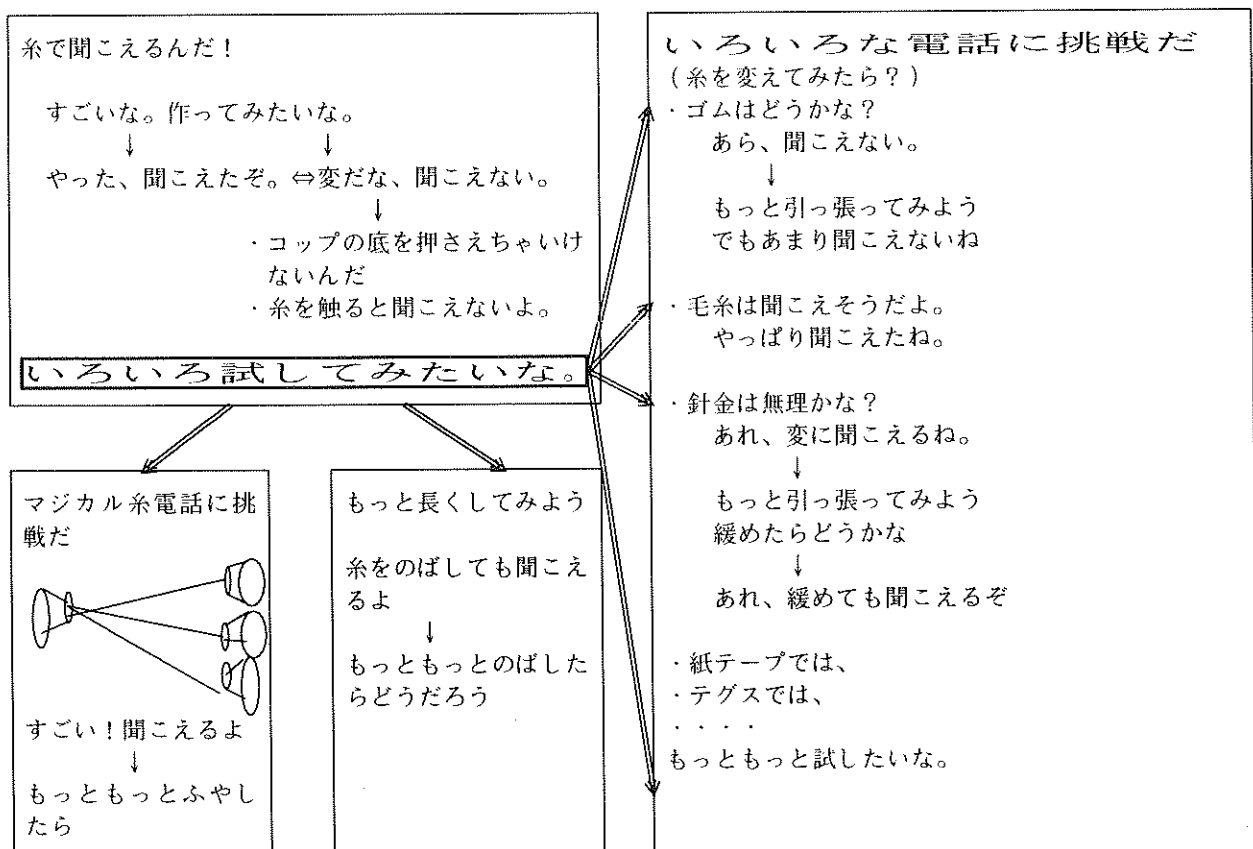 糸で聞こえるんだ！
すごいな。作ってみたいな。
↓ ↓
やった、聞こえたぞ。⇔変だな、聞こえない。
↓
・コップの底を押さえちゃいけ
ないんだ
・糸を触ると聞こえないよ。
いろいろ試してみたいな。
マジカル糸電話に挑
戦だ
すごい！聞こえるよ
↓
もっともっとふやし
たら
もっと長くしてみよう
糸をのばしても聞こえ
るよ
↓
もっともっとのばした
らどうだろう
いろいろな電話に挑戦だ
（糸を変えてみたら？）
・ゴムはどうかな？
あら、聞こえない。
↓
もっと引っ張ってみよう
でもあまり聞こえないね
・毛糸は聞こえそうだよ。
やっぱり聞こえたね。
・針金は無理かな？
あれ、変に聞こえるね。
↓
もっと引っ張ってみよう
緩めたらどうかな
↓
あれ、緩めても聞こえるぞ
・紙テープでは、
・テグスでは、
・・・・
もっともっと試したいな。